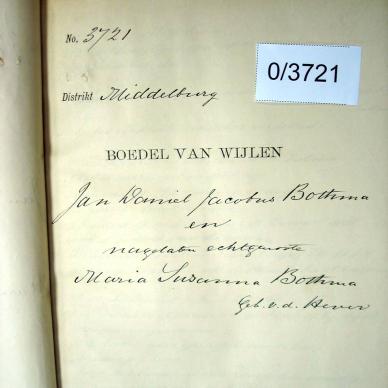 No. 3721
0/3721
Distrikt Middelburg
BOEDEL VAN WIJLEN
Jan Daniel Jacobus Bothma
en
nagelaten echtgenoote
Maria Susanna Bothma
Geb. v. d. Hever